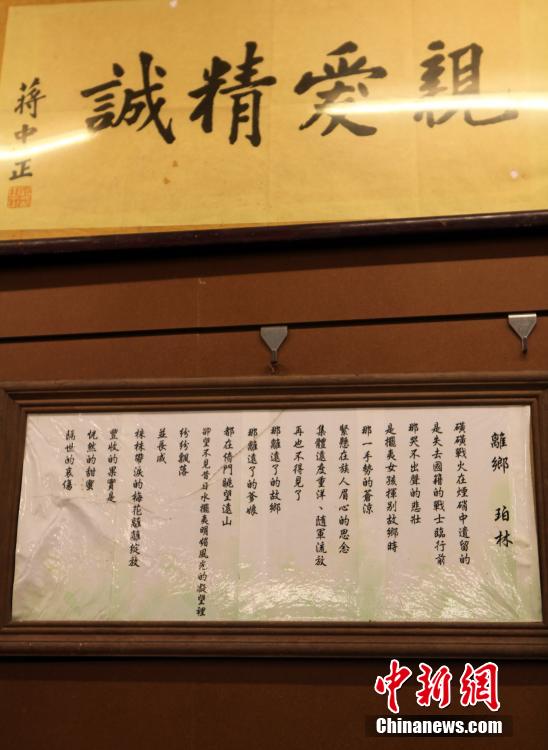 親愛精誠
蔣中正
離鄉 珀林
磺磺戰火在煙硝中遺留的
是失去國籍的戰士臨行前
那哭不出聲的悲壯
是擺夷女孩揮別故鄉時
那一手勢的蒼涼
緊懸在族人眉心的思念
集體遠度重洋、隨軍流放
再也不得見了
那離遠了的故鄉
那離遠了的爹娘
都在倚門眺望遠山
卻望不見昔日水擺夷明媚風光的凝望裡
紛紛飄落
並長成
株株帶淚的梅花離離綻放
豐收的果實是
恍然的甜蜜
隔世的哀傷
中新網
Chinanews.com